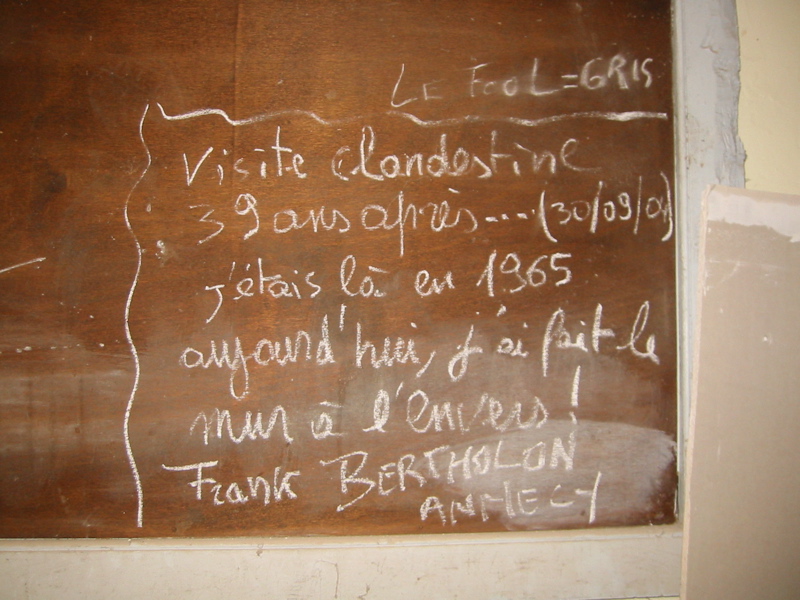 LE FOOL=GRIS
Visite clandestine
39 ans après....(30/09/04)
j'étais là en 1965
aujourd'hui, j'ai fait le
mur à l'envers !
Frank BERTHOLON
ANNECY